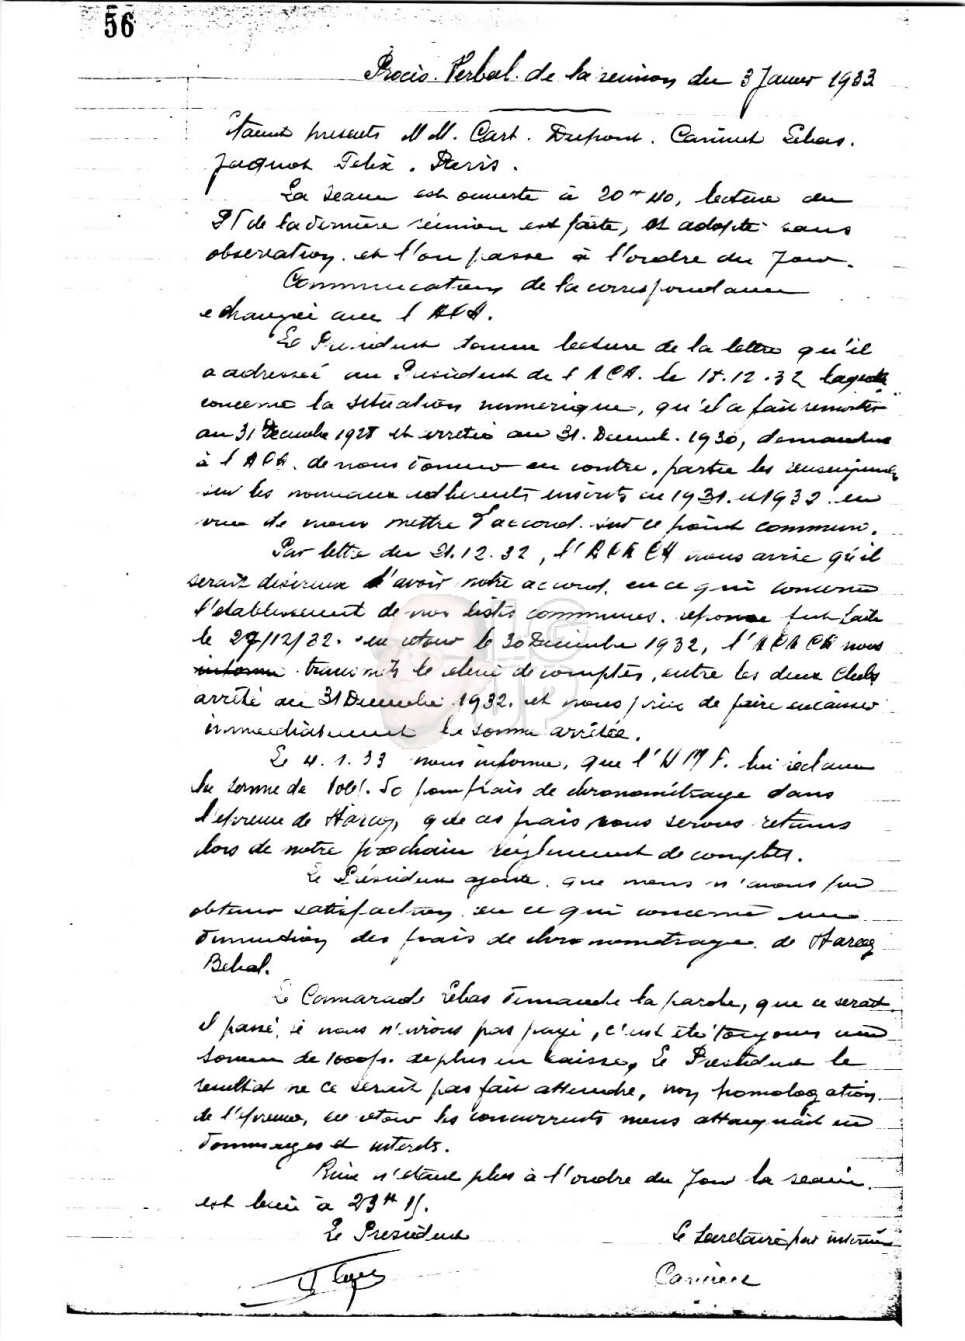 56
Procès-Verbal de la reunion du 3 Janvier 1933
Etaient presents M M. Cart. Dupont. Camut Lebas.
Jacquot Felix. Paris.
La seance est ouverte à 20 H 40, lecture du
PV de la dernière réunion est faite, et adopté sans
observation. et l'on passe à l'ordre du Jour.
Communication de la correspondance
echangée avec l'ACA.
Le President donne lecture de la lettre qu'il
a adressée au President de l'ACA. le 18.12.32 laquelle
concerne la situation numerique, qu'il a fait remonter
au 31 Decembre 1928 et arretée au 31. Decemb. 1930, demandant
à l'ACA. de nous donner en contre, partie les renseignem
sur les nouveaux adherents inscrits en 1931. et 1932. en
vue de nous mettre d'accord. sur ce point commun.
Par lettre du 21.12.32, l'ACA nous avise qu'il
serait désireux d'avoir notre accord, en ce qui concerne
l'etablissement de nos listes communes. reponse fut faite
le 27/12/32. en retour le 30 Decembre 1932, l' nous
informe transmets le releve de comptes, entre les deux Clubs
arrêté au 31 Decembre 1932. et nous prie de faire encaisser
immediatement la somme arrêtée.
Le 4.1.33 nous informe, que l'UMF. lui reclame
la somme de 50 pour frais de chronométrage dans
l'epreuve de que ces frais nous serons retenus
lors de notre prochain réglement de comptes.
Le Président ajoute. que nous n'avons pu
obtenir satisfaction en ce qui concerne une
diminution des frais de chronometrage. de
Le Camarade Lebas demande la parole, que ce serait
il passé, si nous n'avions pas payé, c'est été toujours une
somme de 1000 frs. de plus en caisse, Le President le
resultat ne ce serait pas fait attendre, non homologation.
de l'epreuve, en retour les concurrents nous attaquait en
dommages et interets.
Rien n'etant plus à l'ordre du Jour la seance.
est levée à 23 H 15.
Le President
Le Secretaire par interim